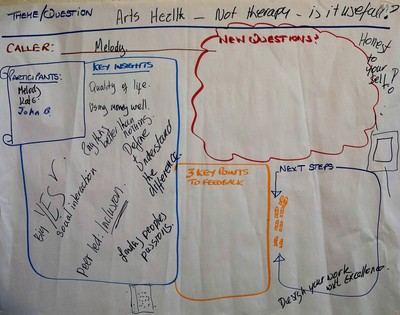 THEME/QUESTION
Arts Health - Not therapy - is it useful?
CALLER: Melody
PARTICIPANTS:
Melody
Kate
John B
KEY INSIGHTS
Quality of life.
Using money well.
better than nothing
Define & understand
the difference.
Big YES
social interaction
Peer led: Inclusion.
peoples
passions.
NEW QUESTIONS?
Honest
to
your
self
3 KEY POINTS
TO FEEDBACK
NEXT STEPS
Design your work
with Excellence